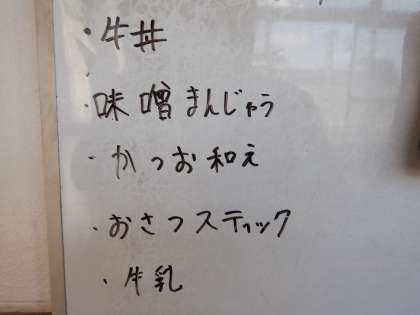 ・牛丼
・味噌まんじゅう
・かつお和え
・おさつスティック
・牛乳